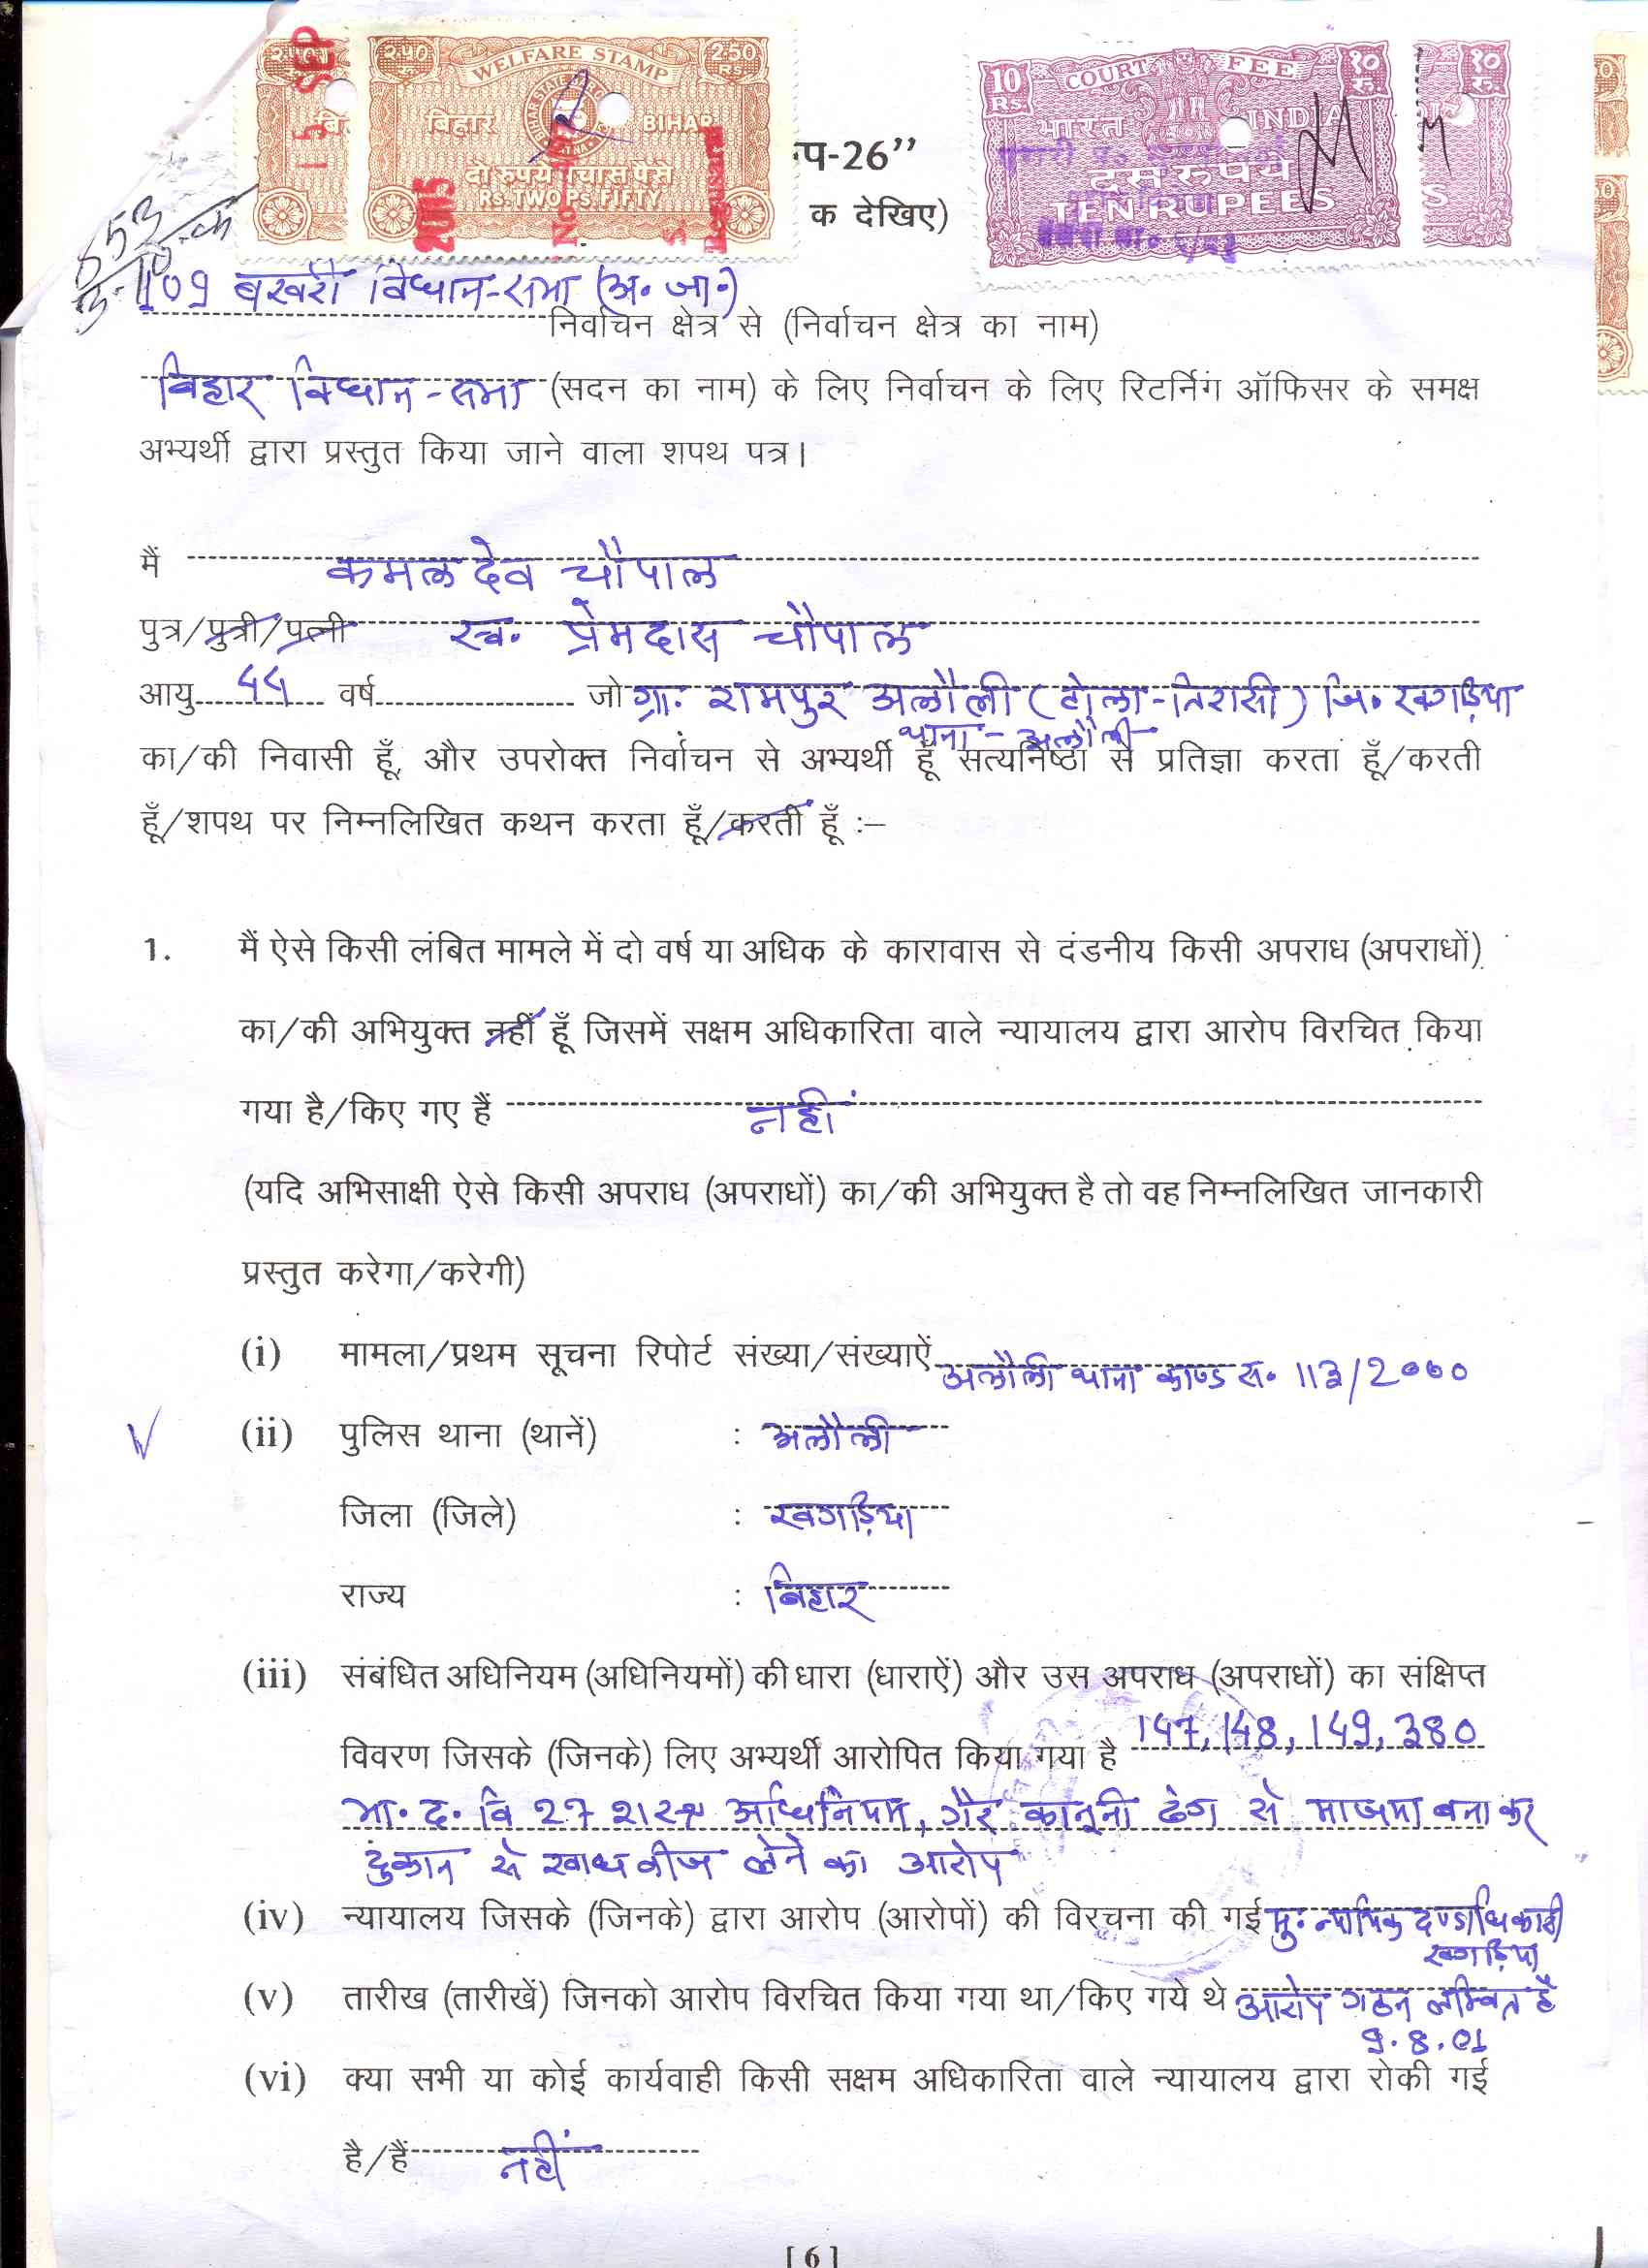 २५० WELFARE STAMP 2.50
बिहार BIHAR
दो रुपये पचास पैसे
RS. TWO PS. FIFTY
15 SEP 2005
10 Rs. COURT FEE १० रु.
भारत INDIA
दस रुपये
TEN RUPEES
प-26”
क देखिए)
109 बखरी विधान-सभा (अ. जा.)
निर्वाचन क्षेत्र से (निर्वाचन क्षेत्र का नाम)
बिहार विधान-सभा (सदन का नाम) के लिए निर्वाचन के लिए रिटर्निग ऑफिसर के समक्ष
अभ्यर्थी द्वारा प्रस्तुत किया जाने वाला शपथ पत्र।
मैं कमलदेव चौपाल
पुत्र/पुत्री/पत्नी स्व. प्रेमदास चौपाल
आयु 44 वर्ष जो ग्रा. रामपुर अलौली (टोला-तिरासी) जि. खगड़िया
थाना - अलौली
का/की निवासी हूँ, और उपरोक्त निर्वाचन से अभ्यर्थी हूँ सत्यनिष्ठा से प्रतिज्ञा करता हूँ/करती
हूँ/शपथ पर निम्नलिखित कथन करता हूँ/करती हूँ :–
1. मैं ऐसे किसी लंबित मामले में दो वर्ष या अधिक के कारावास से दंडनीय किसी अपराध (अपराधों)
का/की अभियुक्त नहीं हूँ जिसमें सक्षम अधिकारिता वाले न्यायालय द्वारा आरोप विरचित किया
गया है/किए गए हैं नहीं
(यदि अभिसाक्षी ऐसे किसी अपराध (अपराधों) का/की अभियुक्त है तो वह निम्नलिखित जानकारी
प्रस्तुत करेगा/करेगी)
(i) मामला/प्रथम सूचना रिपोर्ट संख्या/संख्याऐं अलौली थाना काण्ड स. 113/2000
(ii) पुलिस थाना (थानें) : अलौली
जिला (जिले) : खगड़िया
राज्य : बिहार
(iii) संबंधित अधिनियम (अधिनियमों) की धारा (धाराऐं) और उस अपराध (अपराधों) का संक्षिप्त
विवरण जिसके (जिनके) लिए अभ्यर्थी आरोपित किया गया है 147, 148, 149, 380
भा. द. वि 27 शस्त्र अधिनियम, गैर कानूनी ढंग से माजमा बना कर
दुकान से खाध वीज लेने का आरोप
(iv) न्यायालय जिसके (जिनके) द्वारा आरोप (आरोपों) की विरचना की गई मु. न्यायिक दण्डाधिकारी
खगड़िया
(v) तारीख (तारीखें) जिनको आरोप विरचित किया गया था/किए गये थे आरोप गठन लम्बित है
9.8.01
(vi) क्या सभी या कोई कार्यवाही किसी सक्षम अधिकारिता वाले न्यायालय द्वारा रोकी गई
है/हैं नहीं
[ 6 ]